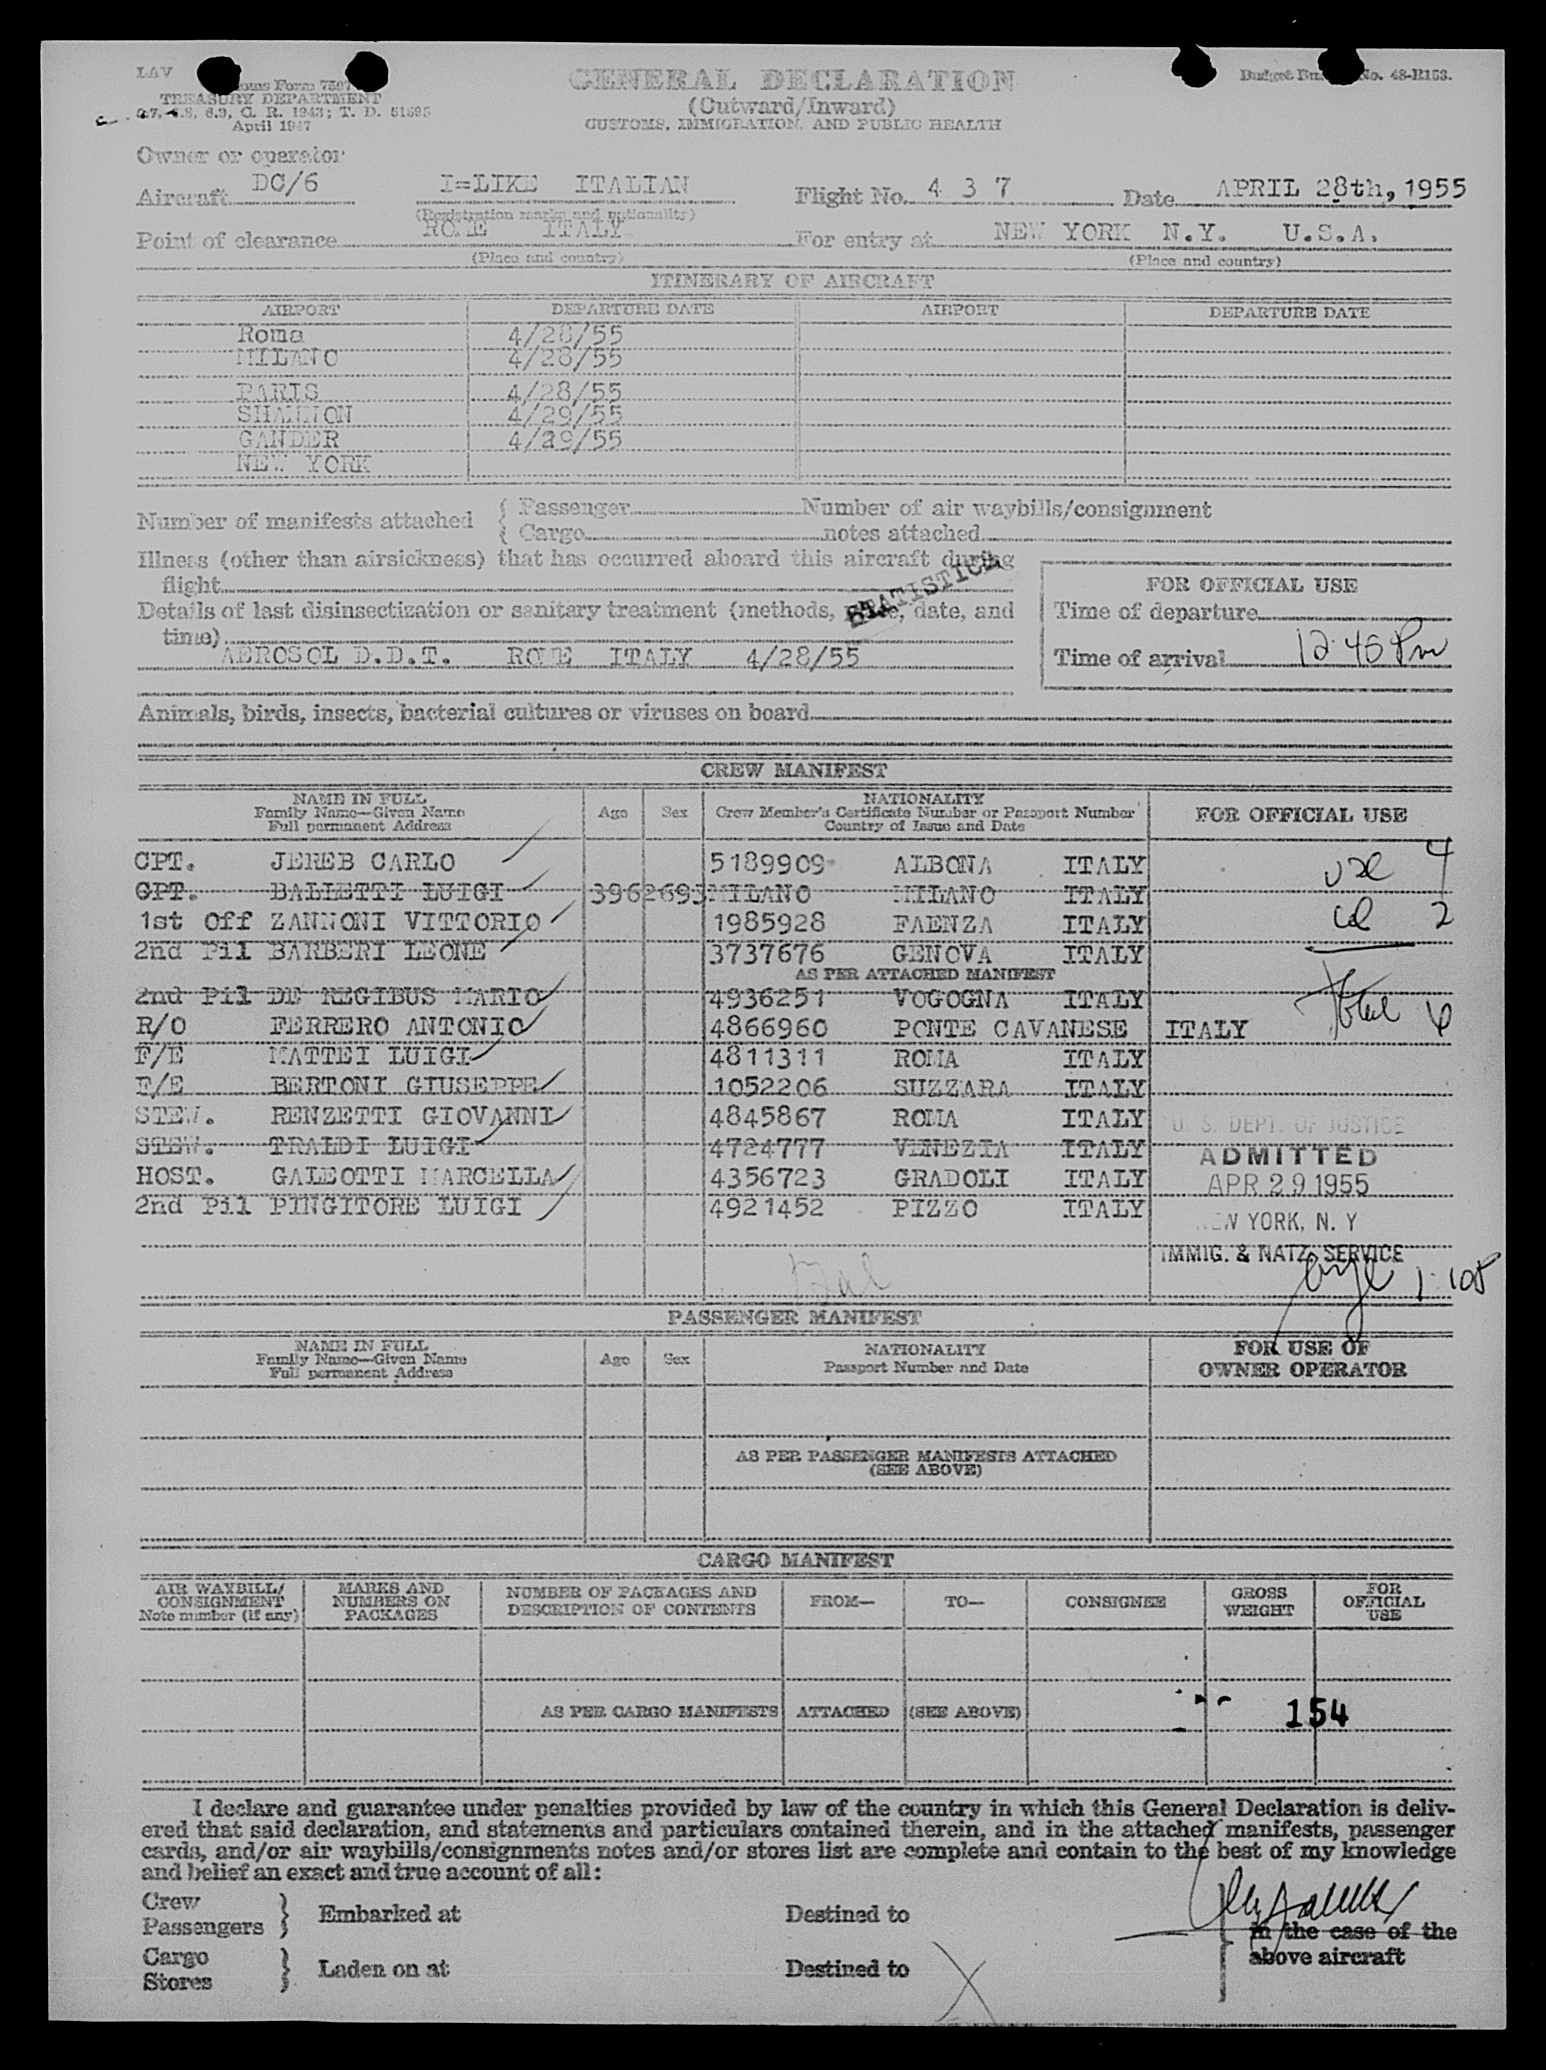 LAV
TREASURY DEPARTMENT
April 1947
GENERAL DECLARATION
(Outward/Inward)
CUSTOMS, IMMIGRATION, AND PUBLIC HEALTH
No. 48-R153.
Owner or operator
Aircraft DC/6 I=LIKE ITALIAN Flight No. 4 3 7 Date APRIL 28th, 1955
(Registration marks and nationality)
Point of clearance ROME ITALY For entry at NEW YORK N.Y. U.S.A.
(Place and country) (Place and country)
ITINERARY OF AIRCRAFT
AIRPORT DEPARTURE DATE AIRPORT DEPARTURE DATE
Roma 4/28/55
MILANO 4/28/55
PARIS 4/28/55
SHANNON 4/29/55
GANDER 4/29/55
NEW YORK
Number of manifests attached { Passenger Number of air waybills/consignment
{ Cargo notes attached
Illness (other than airsickness) that has occurred aboard this aircraft during
flight
STATISTICS
FOR OFFICIAL USE
Details of last disinsectization or sanitary treatment (methods, place, date, and
time)
AEROSOL D.D.T. ROME ITALY 4/28/55
Time of departure
Time of arrival 12:45 Pm
Animals, birds, insects, bacterial cultures or viruses on board
CREW MANIFEST
NAME IN FULL
Family Name—Given Name
Full permanent Address
Age Sex
NATIONALITY
Crew Member's Certificate Number or Passport Number
Country of Issue and Date
FOR OFFICIAL USE
CPT. JEREB CARLO 5189909 ALBONA ITALY
CPT. BALLETTI LUIGI 3962693 MILANO MILANO ITALY
1st Off ZANNONI VITTORIO 1985928 FAENZA ITALY
2nd Pil BARBERI LEONE 3737676 GENOVA ITALY
AS PER ATTACHED MANIFEST
2nd Pil DE REGIBUS MARIO 4936251 VOGOGNA ITALY
R/O FERRERO ANTONIO 4866960 PONTE CAVANESE ITALY
F/E MATTEI LUIGI 4811311 ROMA ITALY
F/E BERTONI GIUSEPPE 1052206 SUZZARA ITALY
STEW. RENZETTI GIOVANNI 4845867 ROMA ITALY
STEW. TRALDI LUIGI 4724777 VENEZIA ITALY
HOST. GALEOTTI MARCELLA 4356723 GRADOLI ITALY
2nd Pil PINGITORE LUIGI 4921452 PIZZO ITALY
4
2
Total 6
U. S. DEPT. OF JUSTICE
ADMITTED
APR 29 1955
NEW YORK, N. Y
IMMIG. & NATZ. SERVICE
PASSENGER MANIFEST
NAME IN FULL
Family Name—Given Name
Full permanent Address
Age Sex
NATIONALITY
Passport Number and Date
FOR USE OF
OWNER OPERATOR
AS PER PASSENGER MANIFESTS ATTACHED
(SEE ABOVE)
CARGO MANIFEST
AIR WAYBILL/
CONSIGNMENT
Note number (if any)
MARKS AND
NUMBERS ON
PACKAGES
NUMBER OF PACKAGES AND
DESCRIPTION OF CONTENTS
FROM—
TO—
CONSIGNEE
GROSS
WEIGHT
FOR
OFFICIAL
USE
AS PER CARGO MANIFESTS ATTACHED (SEE ABOVE)
154
I declare and guarantee under penalties provided by law of the country in which this General Declaration is deliv-
ered that said declaration, and statements and particulars contained therein, and in the attached manifests, passenger
cards, and/or air waybills/consignments notes and/or stores list are complete and contain to the best of my knowledge
and belief an exact and true account of all:
Crew
Passengers } Embarked at Destined to
in the case of the
above aircraft
Cargo
Stores } Laden on at Destined to